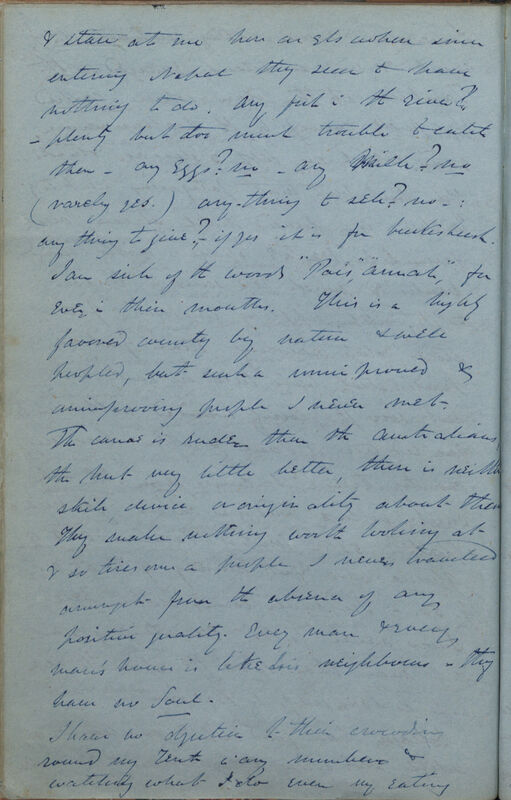 & stare at me here as elsewhere since
entering Nepal they seem to have
nothing to do. any fish i the river?
- plenty but too much trouble to catch
them - any Eggs? no - any Milk? no
(rarely yes.) any-thing to sell? no -:
any thing to give? - if yes it is for buckesheesh.
I am sick of the words "Pois," for
ever i their mouths. This is a highly
favored country by nature & well
peopled, but such a unimproved &
unimproving people I never met -
The canoe is ruder than the Australians,
the hut very little better, there is neither
skill, device or originality about them
They make nothing worth looking at
& so tiresome a people I never travelled
amongst from the absence of any
positive quality. Every man & every
man's house is like his neighbours - they
have no Soul.
I have no objection to their crowding
round my Tent i any numbers &
watching what I do even my eating